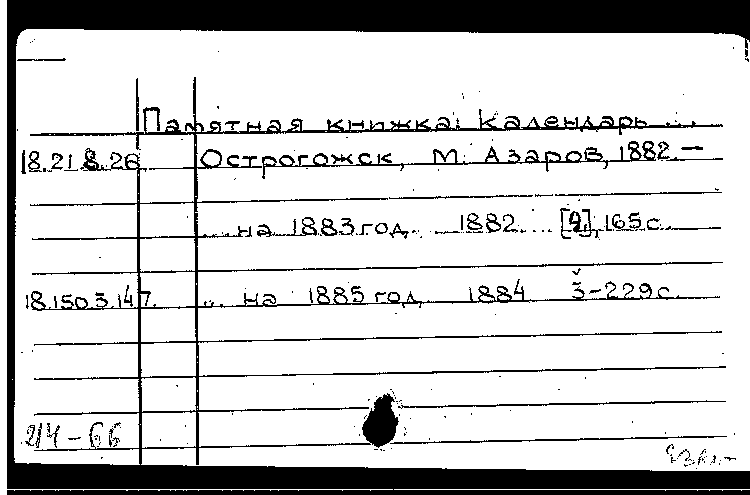 Памятная книжка. Календарь ...
18.21.8.26 Острогожск, М. Азаров, 1882.—
... на 1883 год. 1882. [9], 165 с.
18.150.3.147. ... на 1885 год, 1884 3-229 с.
214-66